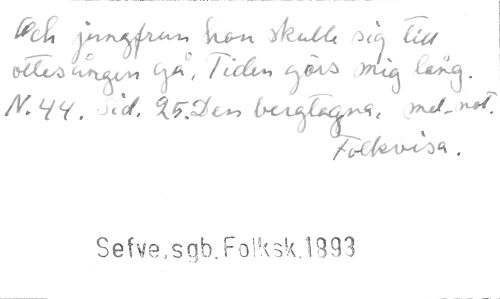 Och jungfrun hon skulle sig till
ottesången gå. Tiden görs mig lång.
N. 44. Sid. 25. Den bergtagna. mel.-not.
Folkvisa.
Sefve,sgb.Folksk.1893